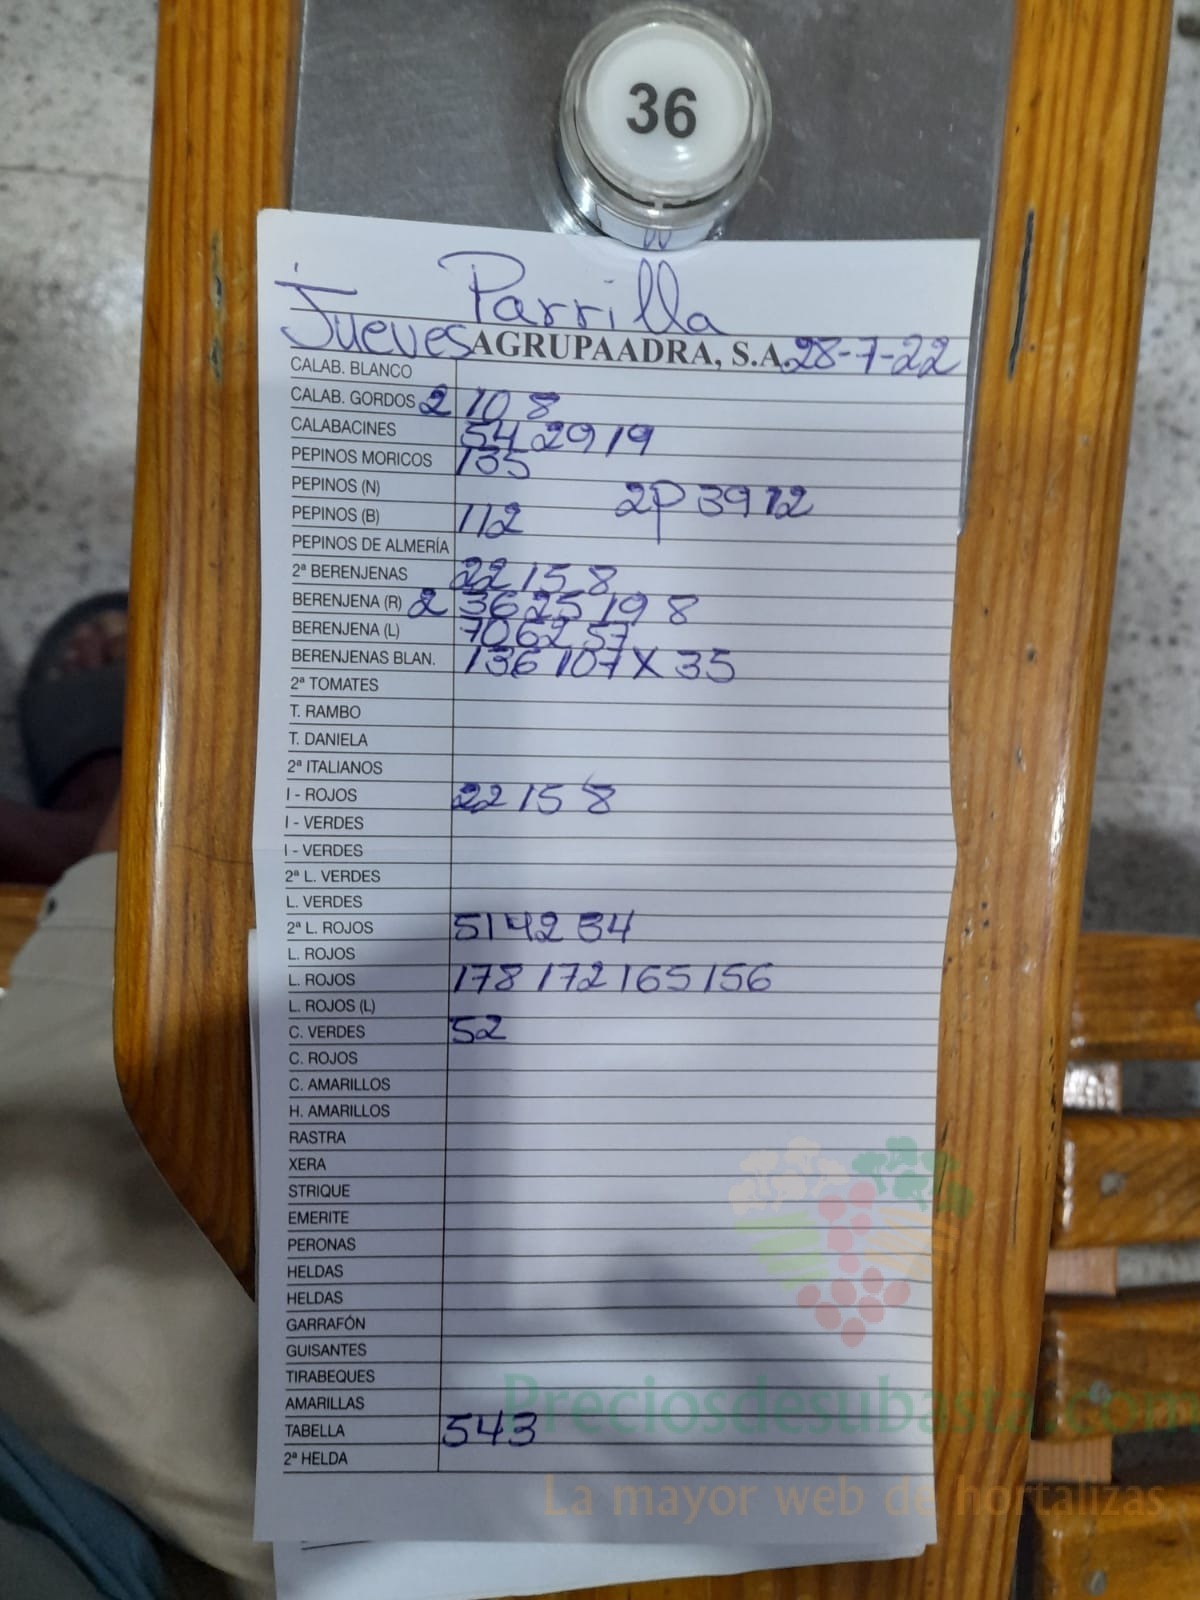 36
Parrilla
Jueves AGRUPAADRA, S.A. 28-7-22
CALAB. BLANCO
CALAB. GORDOS 2 10 8
CALABACINES 54 29 19
PEPINOS MORICOS 135
PEPINOS (N) 2P 39 12
PEPINOS (B) 112
PEPINOS DE ALMERÍA
2ª BERENJENAS 22 15 8
BERENJENA (R) 2 36 25 19 8
BERENJENA (L) 70 62 57
BERENJENAS BLAN. 136 107 X 35
2ª TOMATES
T. RAMBO
T. DANIELA
2ª ITALIANOS
I - ROJOS 22 15 8
I - VERDES
I - VERDES
2ª L. VERDES
L. VERDES
2ª L. ROJOS 51 42 34
L. ROJOS
L. ROJOS 178 172 165 156
L. ROJOS (L)
C. VERDES 52
C. ROJOS
C. AMARILLOS
H. AMARILLOS
RASTRA
XERA
STRIQUE
EMERITE
PERONAS
HELDAS
HELDAS
GARRAFÓN
GUISANTES
TIRABEQUES
AMARILLAS
TABELLA 543
2ª HELDA
Preciosdesubasta.com
La mayor web de hortalizas